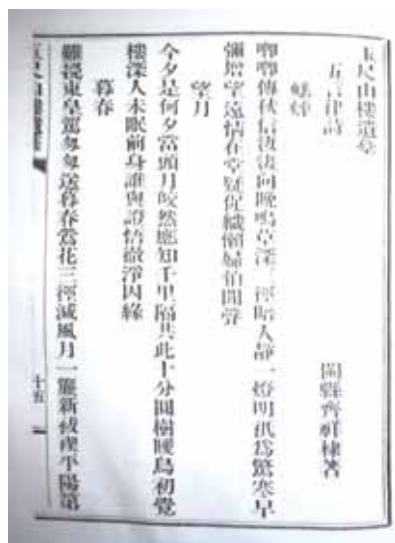 玉尺山樓遺稾
五言律詩 閩縣齊祥棣著
蟋蟀
唧唧傳秋信淒淒向晚鳴草深三徑暗人靜一燈明祇爲驚寒早
彌增望遠情在堂疑促織懶婦怕聞聲
望月
今夕是何夕當頭月皎然應知千里隔共此十分圓樹暖鳥初覺
樓深人未眠前身誰與證悟徹淨因緣
暮春
難挽東皇駕匆匆送暮春鶯花三徑減風月一簾新祓禊平陽第
十五